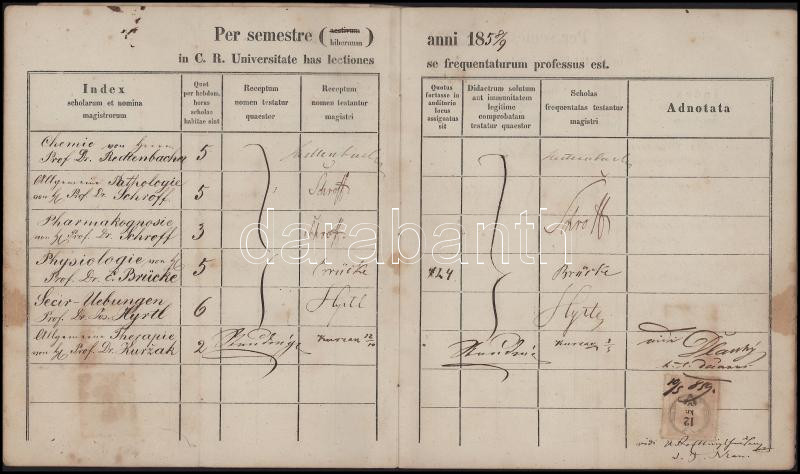 Per semestre (aestivum hibernum) anni 1858/9
in C. R. Universitate has lectiones se frequentaturum professus est.
Index scholarum et nomina magistrorum
Quot per hebdom. horas scholae habitae sint
Receptum nomen testatur quaestor
Receptum nomen testantur magistri
Quotus fortasse in auditorio locus assignatus sit
Didactrum solutum aut immunitatem legitime comprobatam testatur quaestor
Scholas frequentatas testantur magistri
Adnotata
Chemie von Herrn
Prof. Dr. Redtenbacher 5 Redtenbacher Redtenbacher
Allgemeine Pathologie
von H Prof. Dr. Schroff. 5 Schroff Schroff
Pharmakognosie
von H Prof. Dr. Schroff 3 Schroff.
Physiologie von H
Prof. Dr. E. Brücke 5 Brücke 124 Brücke
Secir-Uebungen
Prof. Dr. Jos. Hyrtl 6 Hyrtl Hyrtl
Allgemeine Therapie
von H Prof. Dr. Kuržak 2 Kurzak
vidi Dlauhy
10/5 859.
12
vidi
darabanth.com